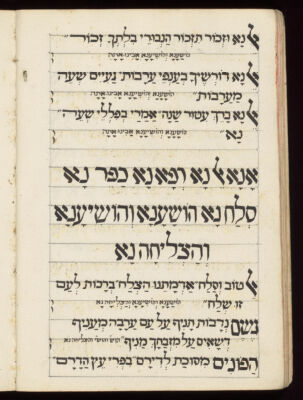 אל נא וזכור תזכור הנבורי בלתך זכור
הושענא והושיענא אבינו אתה
אל נא דורשיך בענפי ערבות נעים שעה
מערבות הושענא והושיענא אבינו אתה
אל נא ברך עטור שנה אמרי בפללי שעה
נא הושענא והושיענא אבינו אתה
אנא אל נא רפא נא כפר נא
סלח נא הושענא והושיענא
והצליחה נא
אל טוב וסלח אדמתנו הצלח ברכות לעם
זו שלח הושענא והושיענא והצליחה נא
נשם נדבות תניף על עם ערבה מעניף
דשאים על מזבחך מניף והצליחה נא
הפונים מסוכת לדירם בפרי עץ הדרם